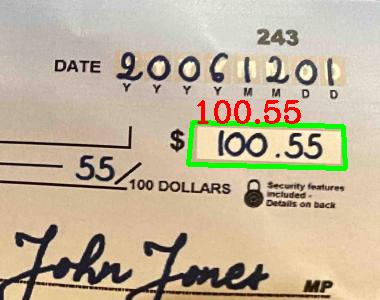 243
DATE 20061201
Y Y Y Y M M D D
100.55
$ 100.55
55/100 DOLLARS
Security features
included -
Details on back
John Jones
MP